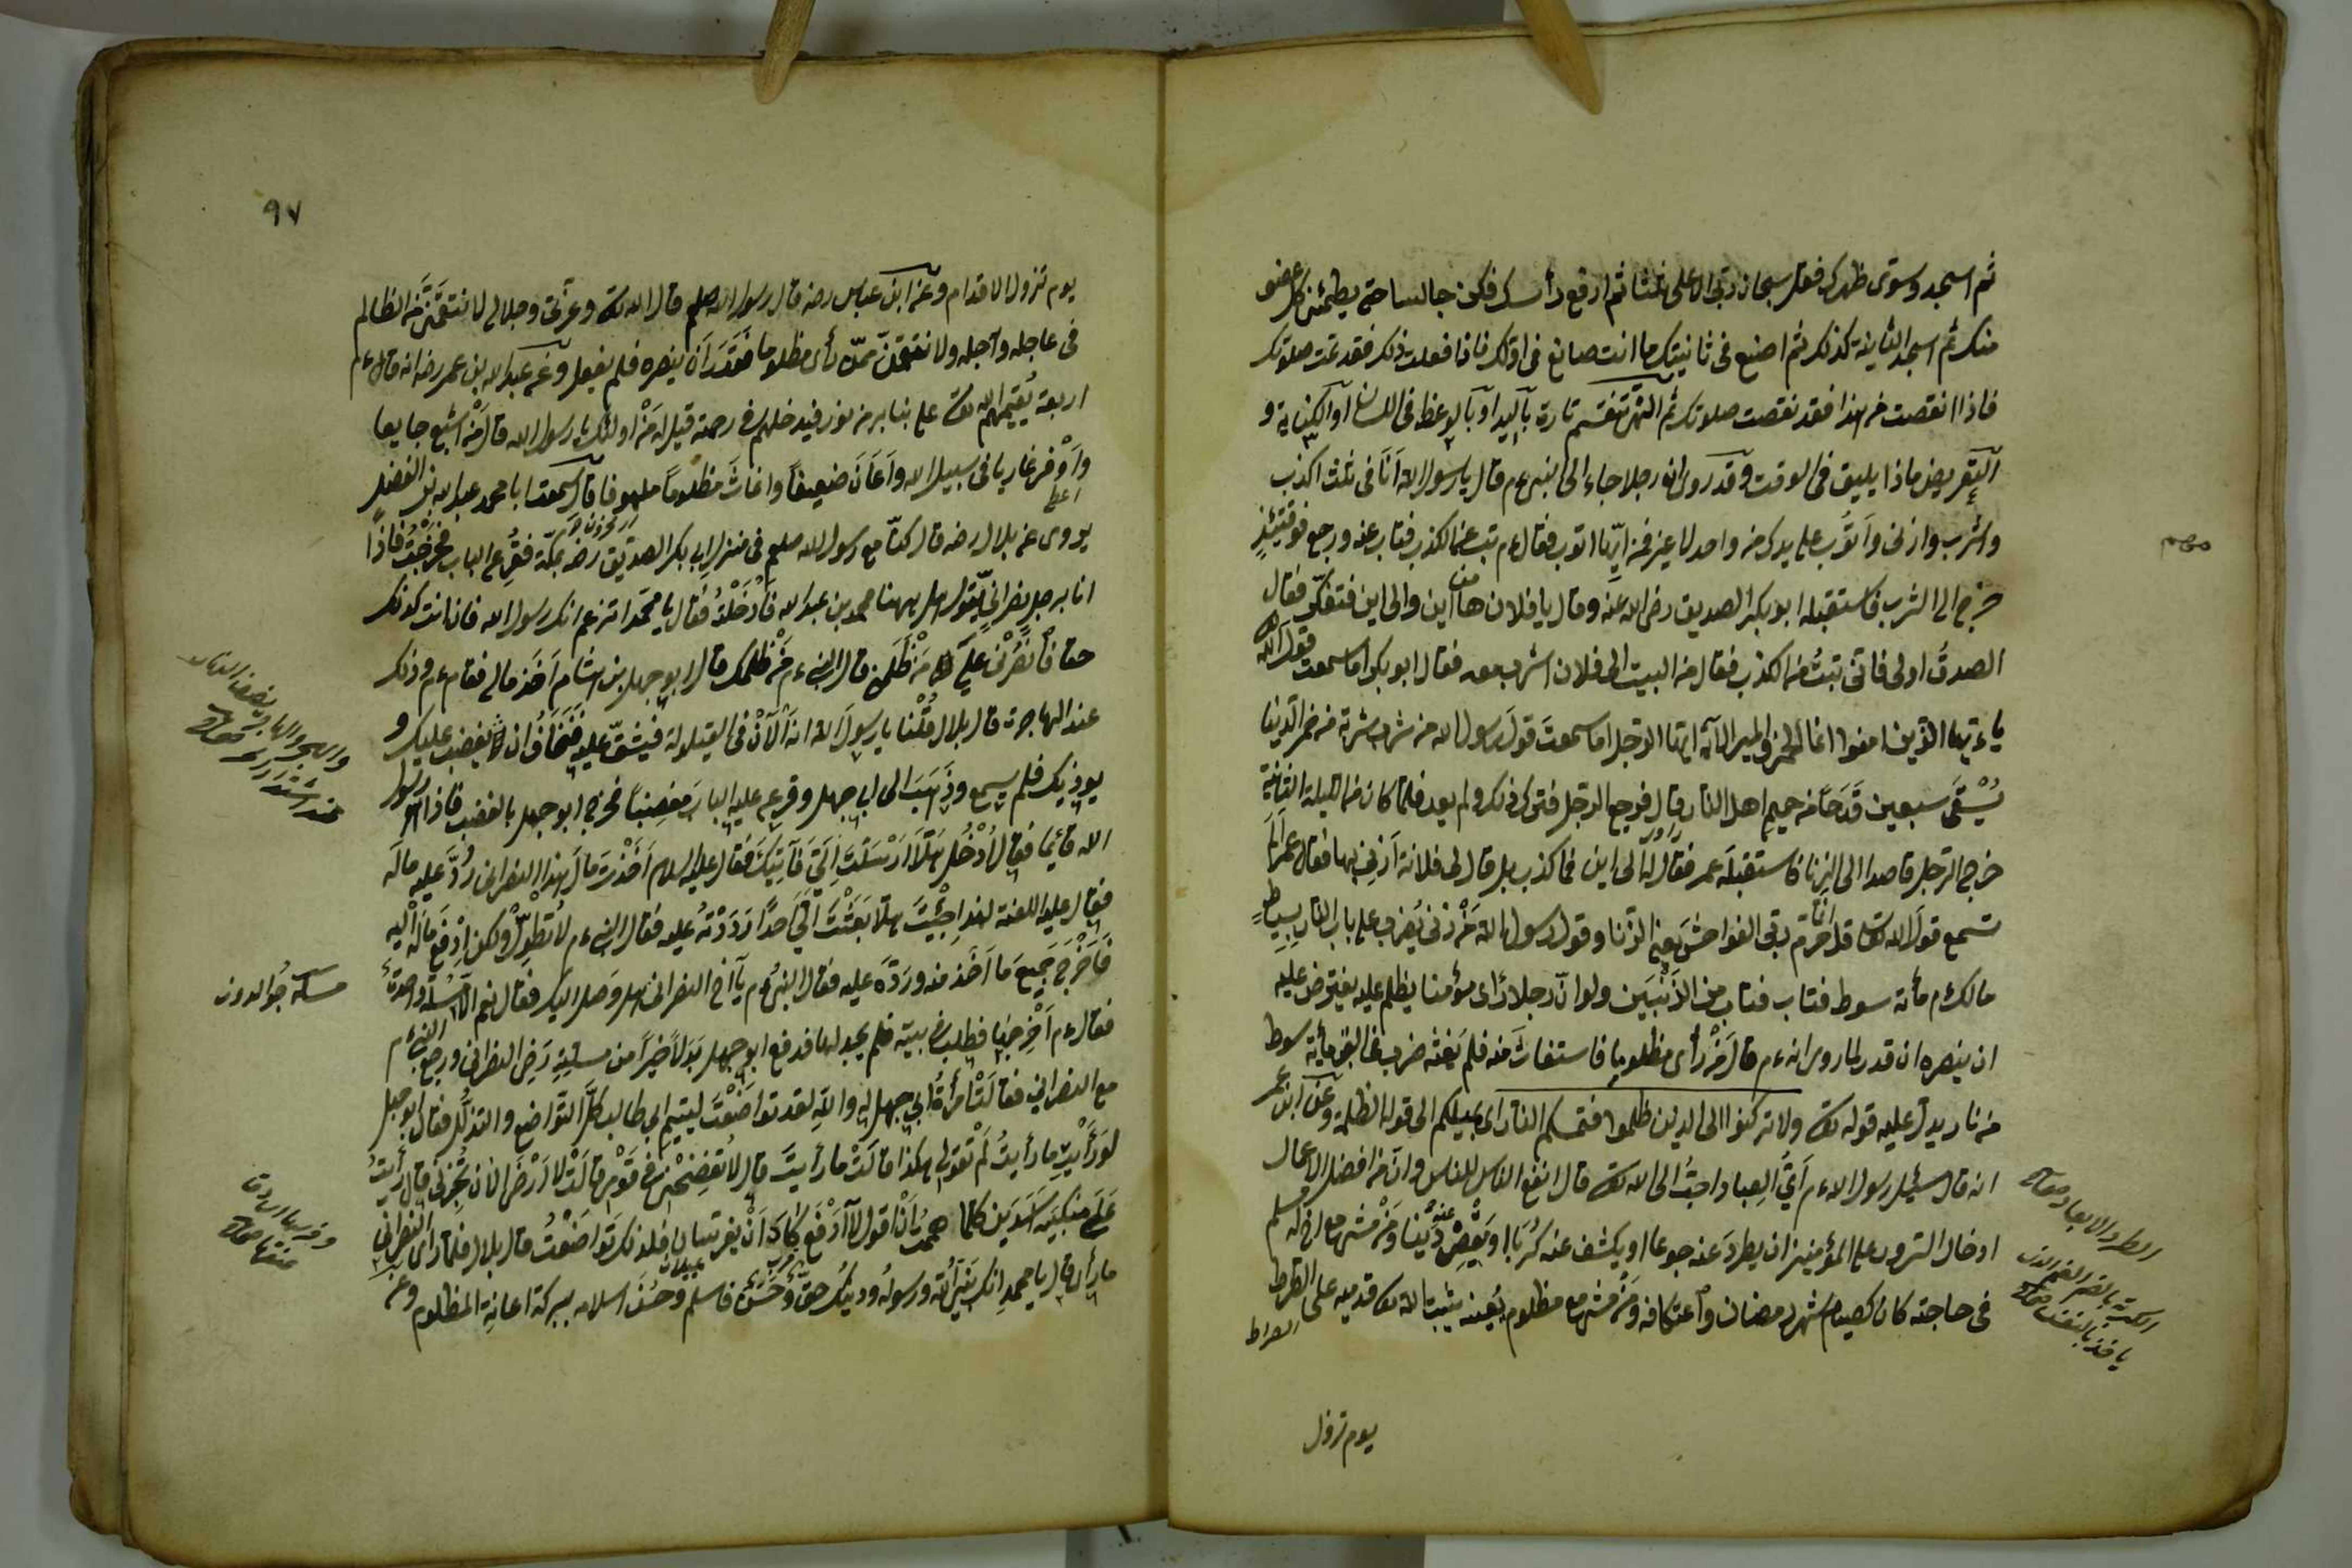 ثم اسجد وسوى ظهرك فقل سبحان ربى الاعلى ثلثا ثم ارفع رأسك فكن جالسا حتى يطمئن كل عضو
منك ثم اسجد الثانية كذلك ثم اصنع فى ثانيتك ما انت صانع فى اولك فاذا فعلت ذلك فقد تمت صلوتك
فاذا انقصت من هذا فقد نقصت صلوتك ثم النهى تنقسم تارة باليد او بالوعظ فى اللسان او الكناية و
التعريض ماذا يليق فى الوقت وقد روى ان رجلا جاء الى النبى ءم قال يا رسول الله انا فى ثلث اكذب
واشرب وازنى واتوب على يدك من واحد لا غير فمن ايها اتوب فقال ءم تب عن الكذب فتاب عنه ورجع فوقتئذ
مهم
خرج الى الشرب فاستقبله ابو بكر الصديق رضى الله عنه وقال يا فلان ها من اين والى اين فتفكر فقال
الصدق اولى فانى تبت من الكذب فقال من البيت الى فلان اشرب معه فقال ابو بكر اما سمعت قول الله
يا ءيها الذين امنوا انما الخمر والميسر الاية ايها الرجل اما سمعت قول رسول الله من شرب شربة من خمر الدنيا
يسقى سبعين قدحا من حميم اهل النار قال فرجع الرجل فترك ذلك ولم يعد فلما كان من الليلة الثانية
خرج الرجل قاصدا الى الزنا فاستقبله عمر فقال له الى اين فما كذب بل قال الى فلانة ازنى بها فقال عمر اما
تسمع قول الله تعا قل انما حرم ربى الفواحش يعنى الزنا وقول رسول الله من زنى يضرب على باب النار بسياط
مالك ءم مأة سوط فتاب فتاب من الذنبين ولو ان رجلا رأى مؤمنا يظلم عليه يفترض عليه
ان ينصره ان قدر لما روى انه ءم قال من رأى مظلوما فاستغاث منه فلم يغثه ضرب فى القبر مأية سوط
من نار يدل عليه قوله تعا ولا تركنوا الى الذين ظلموا فتمسكم النار اى بميلكم الى قول الظلمة وعن ابن عمر
انه قال سئل رسول الله ءم اى العباد احب الى الله تعا قال انفع الناس للناس وان من افضل الاعمال
ادخال السرور على المؤمنين ان يطرد عنه جوعا او يكشف عنه كربا او يقض عنه دينا ومن مشى مع اخ له مسلم
فى حاجته كان كصيام شهر رمضان واعتكافه ومن مشى مع مظلوم يعينه يثبت الله تعا قدميه على الصراط
الصراط
يوم تزول
٩٧
يوم تزول الاقدام وعن ابن عباس رضه قال رسول الله صلعم قال الله تعا وعزتى وجلالى لانتقمن من الظالم
فى عاجله وآجله ولانتقمن ممن رأى مظلوما فقدر ان ينصره فلم يفعل وعن عبد الله بن عمر رضه انه قال ءم
اربعة يقيمهم الله تعا على منابر من نور فيدخلهم فى رحمته قيل له من اولئك يا رسول الله قال من اشبع جايعا
واوفر غازيا فى سبيل الله واعان ضعيفا واغاث مظلوما ملهوفا قال سمعت ابا محمد عبد الله بن الفضل
يروى عن بلال رضه قال كنا مع رسول الله صلعم فى منزل ابى بكر الصديق رضه بمكة فقرع الباب فخرجت فاذا
انا برجل نصرانى يقول هل ههنا محمد بن عبد الله فادخلته فقال يا محمد اتزعم انك رسول الله فان انت كذلك
حقا فانصرنى على من ظلمنى قال النبى ءم من ظلمك قال ابو جهل بن هشام اخذ مالى فقام ءم وذلك
عند الهاجرة قال بلال قلنا يا رسول الله انه الآن فى القيلولة فيشق عليه فنخاف ان يغضب عليك و
يوذيك فلم يسمع وذهب الى ابى جهل وقرع عليه الباب مغضبا فخرج ابو جهل بالغضب فاذا هو رسول
الله قائما فقال ادخل هلا ارسلت الى فآتيك فقال عليه السلام اخذت مال هذا النصرانى رد عليه ماله
فقال عليه اللعنة لهذا جئت هلا بعثت الى احدا رددته عليه فقال النبى ءم لا تطول ولكن ادفع ماله اليه
فاخرج جميع ما اخذ منه ورده عليه فقال النبى ءم يا اخ النصرانى هل وصل اليك فقال نعم الا سلة واحدة
فقال ءم اخرجها فطلب فى بيته فلم يجد لها فدفع ابو جهل بدلا خيرا من سلته رضى النصرانى ورجع النبى ءم
مع النصرانى فقالت امرأة ابى جهل له والله لقد تواضعت ليتيم ابى طالب كل التواضع والتذلل فقال ابو جهل
لو رأيت ما رأيت لم تقولى هكذا قالت ما رأيت قال لا تفضحنى فى قومى قالت لا ارض الا ان تخبرنى قال رأيت
على منكبيه اسدين كلما هممت ان اقول لا ادفع كادا ان يفرتسان فلذلك تواضعت قال بلال فلما رأى النصرانى
ما رأى قال يا محمد انك نبى الله ورسوله ودينك حق وحسن فاسلم وحسن اسلامه ببركة اعانة المظلوم وعن
مسكه جوالدون